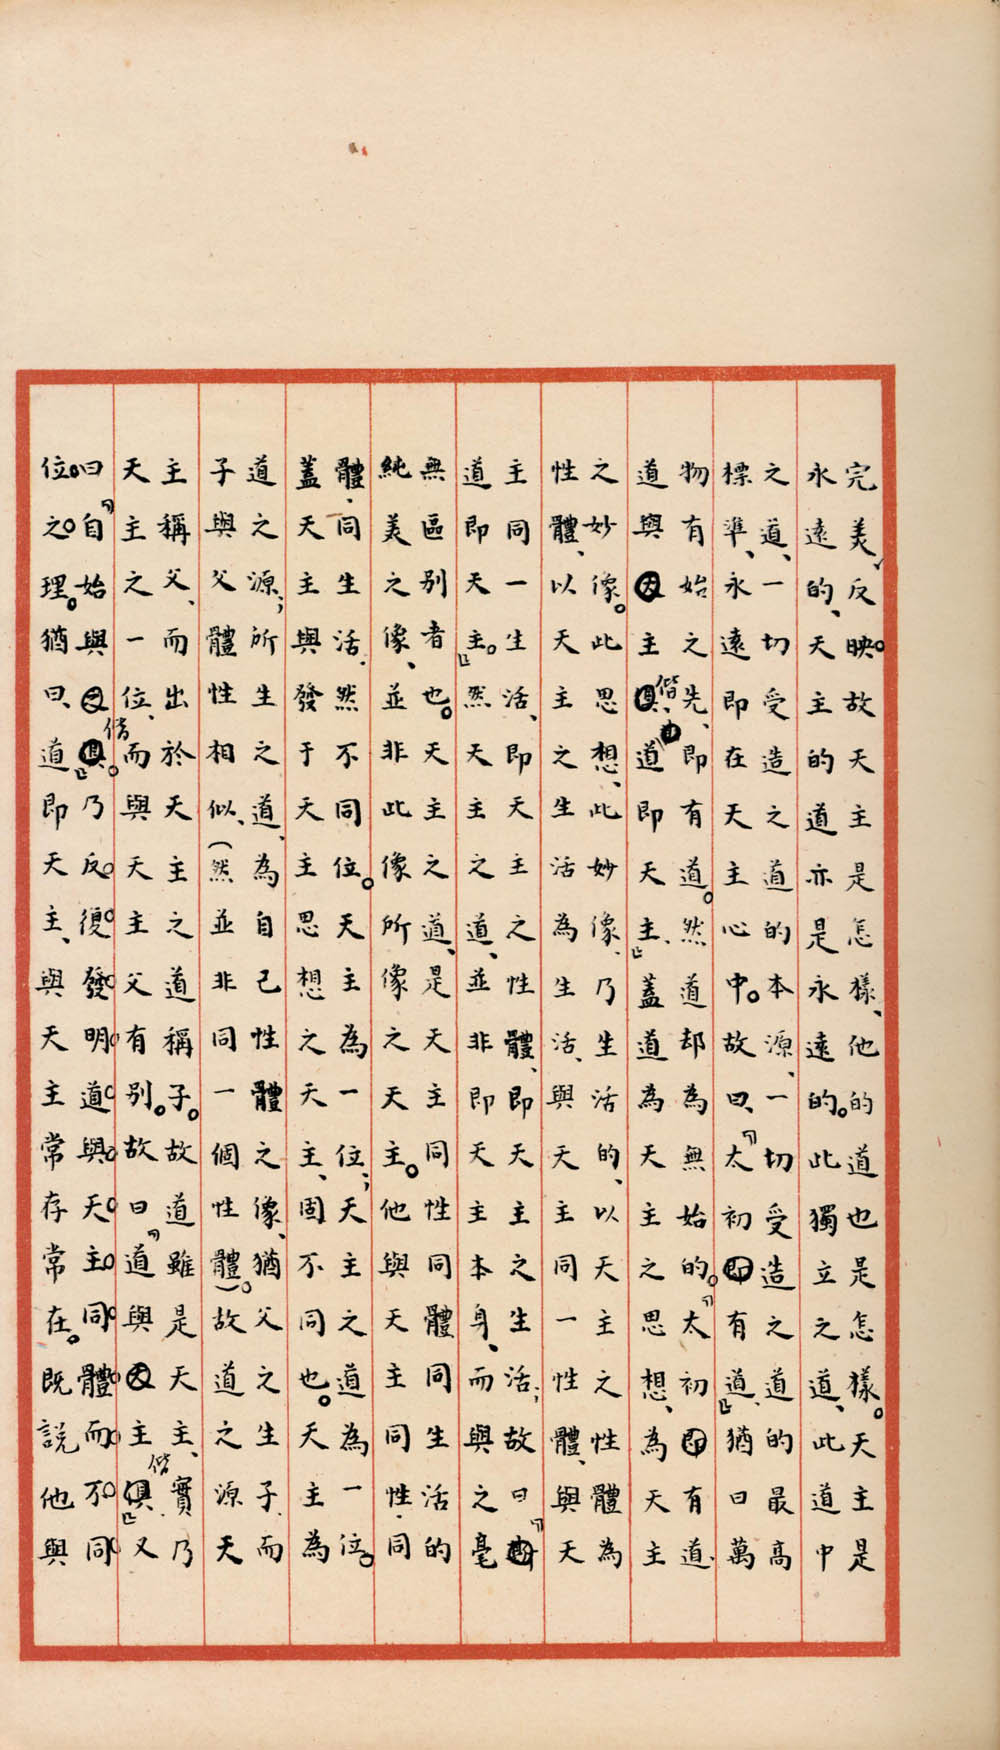 完美、反映。故天主是怎樣、他的道也是怎樣。天主是
永遠的、天主的道亦是永遠的。此獨立之道、此道中
之道、一切受造之道的本源、一切受造之道的最高
標準、永遠即在天主心中。故曰、「太初有道、」猶曰萬
物有始之先、即有道。然道却為無始的。「太初有道、
道與主偕、道即天主、」蓋道為天主之思想、為天主
之妙像。此思想、此妙像、乃生活的、以天主之性體為
性體、以天主之生活為生活、與天主同一性體、與天
主同一生活、即天主之性體、即天主之生活；故曰「
道即天主。」然天主之道、並非即天主本身、而與之毫
無區別者也。天主之道、是天主同性同體同生活的
純美之像、並非此像所像之天主。他與天主同性、同
體、同生活、然不同位。天主為一位；天主之道為一位。
蓋天主與發于天主思想之天主、固不同也。天主為
道之源；所生之道、為自己性體之像、猶父之生子、而
子與父體性相似、(然並非同一個性體)。故道之源天
主稱父、而出於天主之道稱子。故道雖是天主、實乃
天主之一位、而與天主父有別。故曰「道與主偕、」又
曰「自始與偕」。乃反復發明道與天主同體而不同
位之理。猶曰、道即天主、與天主常存常在。既說他與